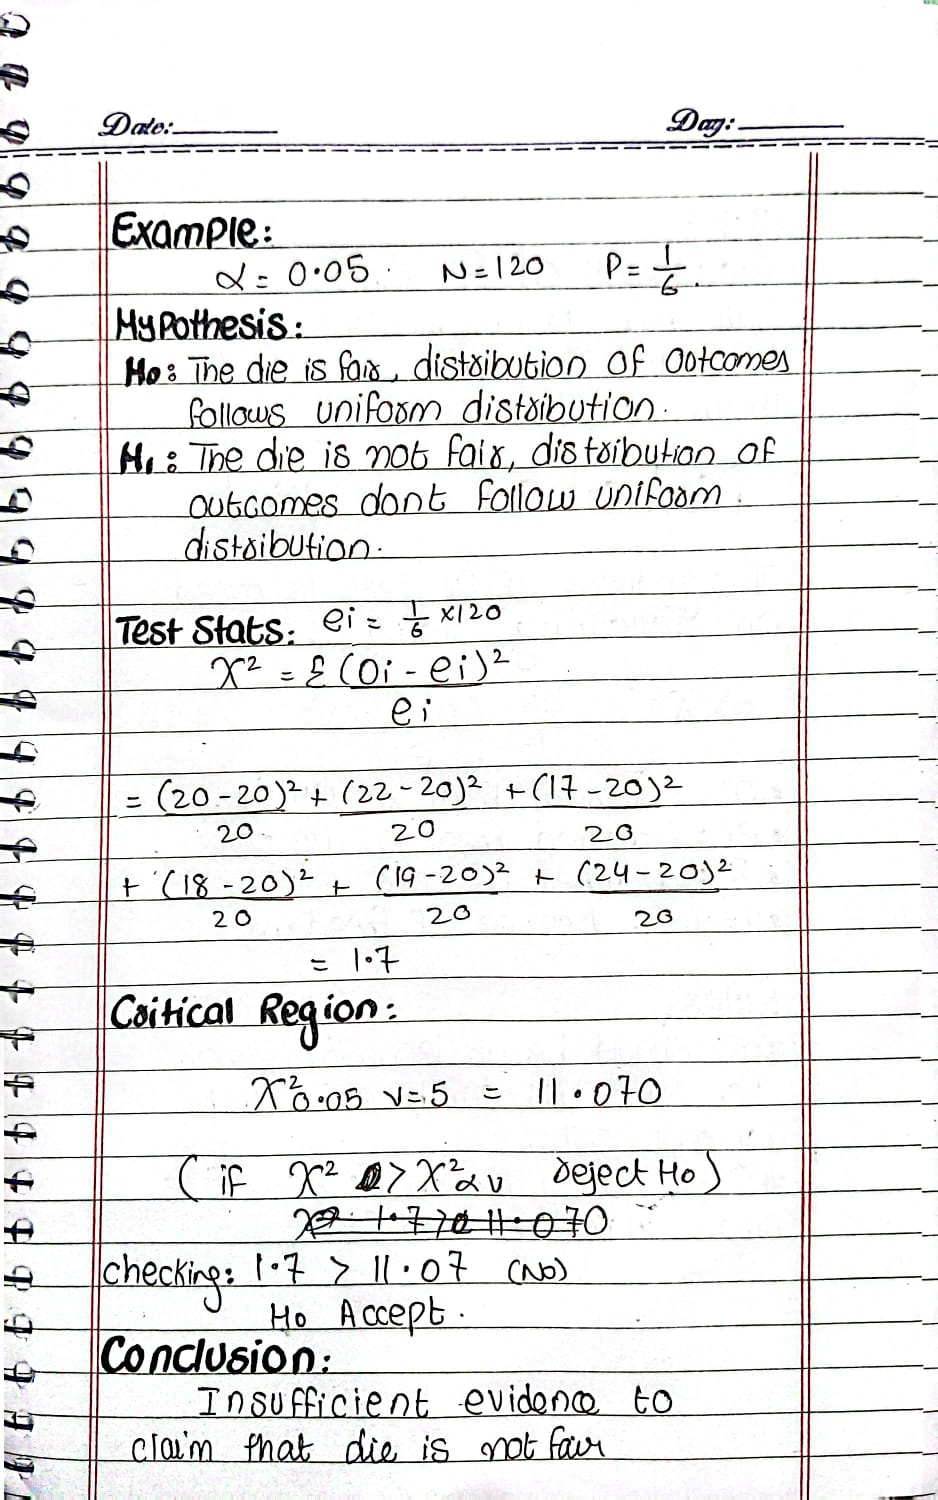 Date: Day:
Example:
α = 0.05. N=120 P= 1/6.
Hypothesis:
H0: The die is fair, distribution of outcomes
follows uniform distribution.
H1: The die is not fair, distribution of
outcomes dont follow uniform
distribution.
Test Stats: ei = 1/6 x120
χ² = Σ (Oi - ei)²
ei
= (20-20)² + (22-20)² + (17-20)²
20 20 20
+ (18-20)² + (19-20)² + (24-20)²
20 20 20
= 1.7
Critical Region:
χ²0.05 v=5 = 11.070
(if χ² > χ²αv reject Ho)
1.7 > 11.070
checking: 1.7 > 11.07 (No)
Ho Accept.
Conclusion:
Insufficient evidence to
claim that die is not fair